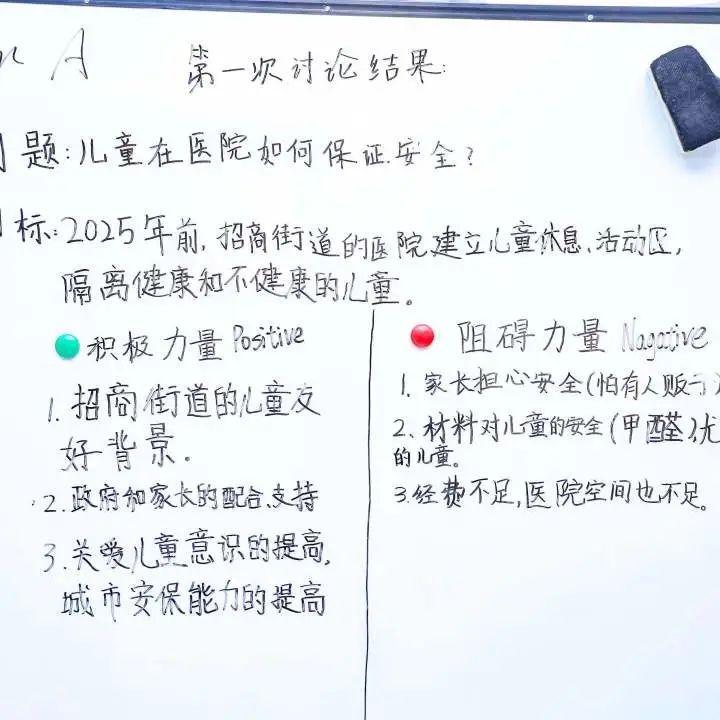 A
第一次讨论结果:
题:儿童在医院如何保证安全?
标:2025年前,招商街道的医院建立儿童休息、活动区,
隔离健康和不健康的儿童。
积极力量 Positive
1. 招商街道的儿童友
好背景.
2. 政府和家长的配合、支持
3. 关爱儿童意识的提高,
城市安保能力的提高
阻碍力量 Nagative
1. 家长担心安全(怕有人贩子)
2、材料对儿童的安全(甲醛),尤
的儿童。
3.经费不足,医院空间也不足。